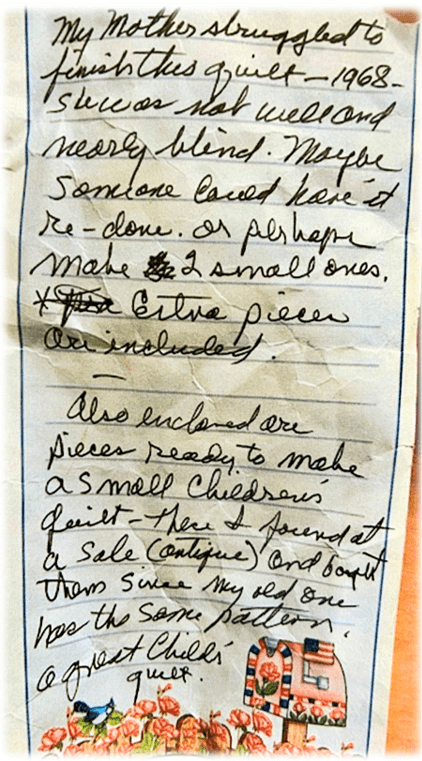 My Mother struggled to
finish this quilt – 1968 –
She was not well and
nearly blind. Maybe
Someone could have it
re-done. or perhaps
make 2 small ones.
* Extra pieces
are included.
Also enclosed are
pieces ready to make
a small Children's
Quilt – These I found at
a Sale (antique) and bought
them since my old one
has the same pattern.
a great Child's
quilt.